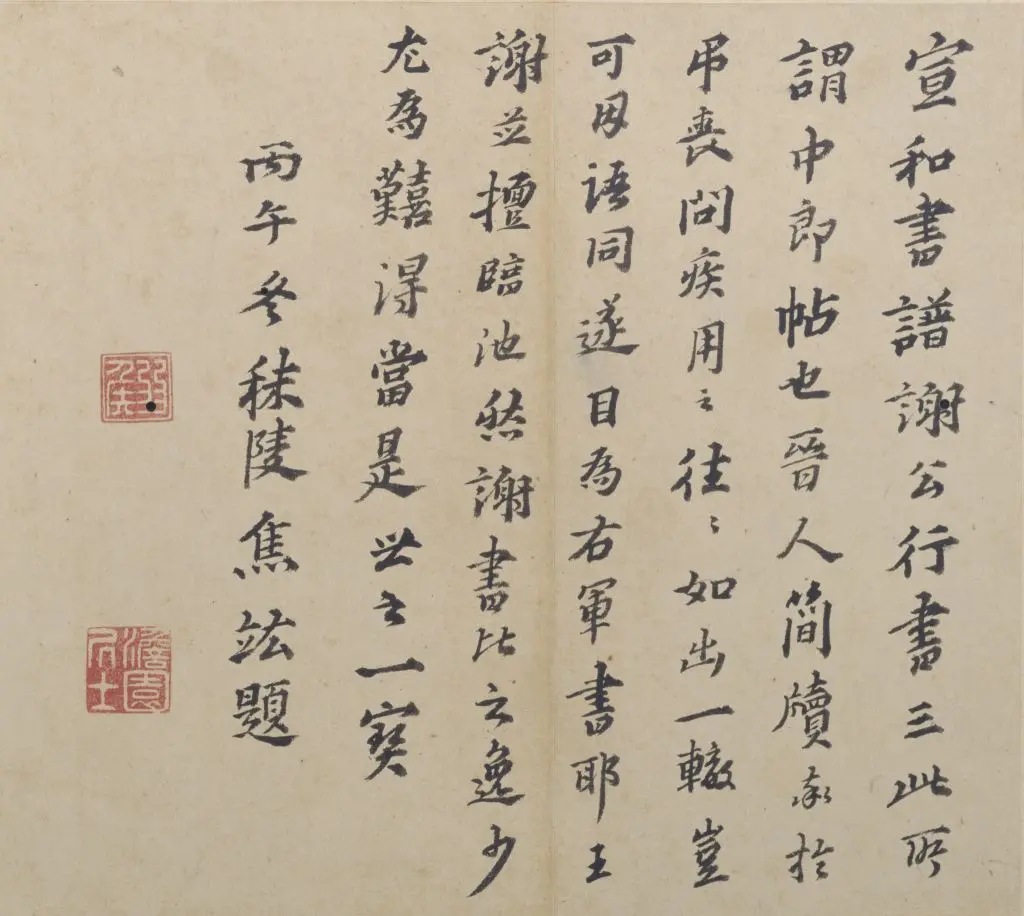 宣和書譜謝公行書三此所
謂中郎帖也晉人簡牘於
吊喪問疾用之往〻如出一轍豈
可因語同遂目為右軍書耶王
謝並擅臨池然謝書比之逸少
尤為囏得當是世之一寶
丙午冬秣陵焦竑題
弱侯
澹園居士